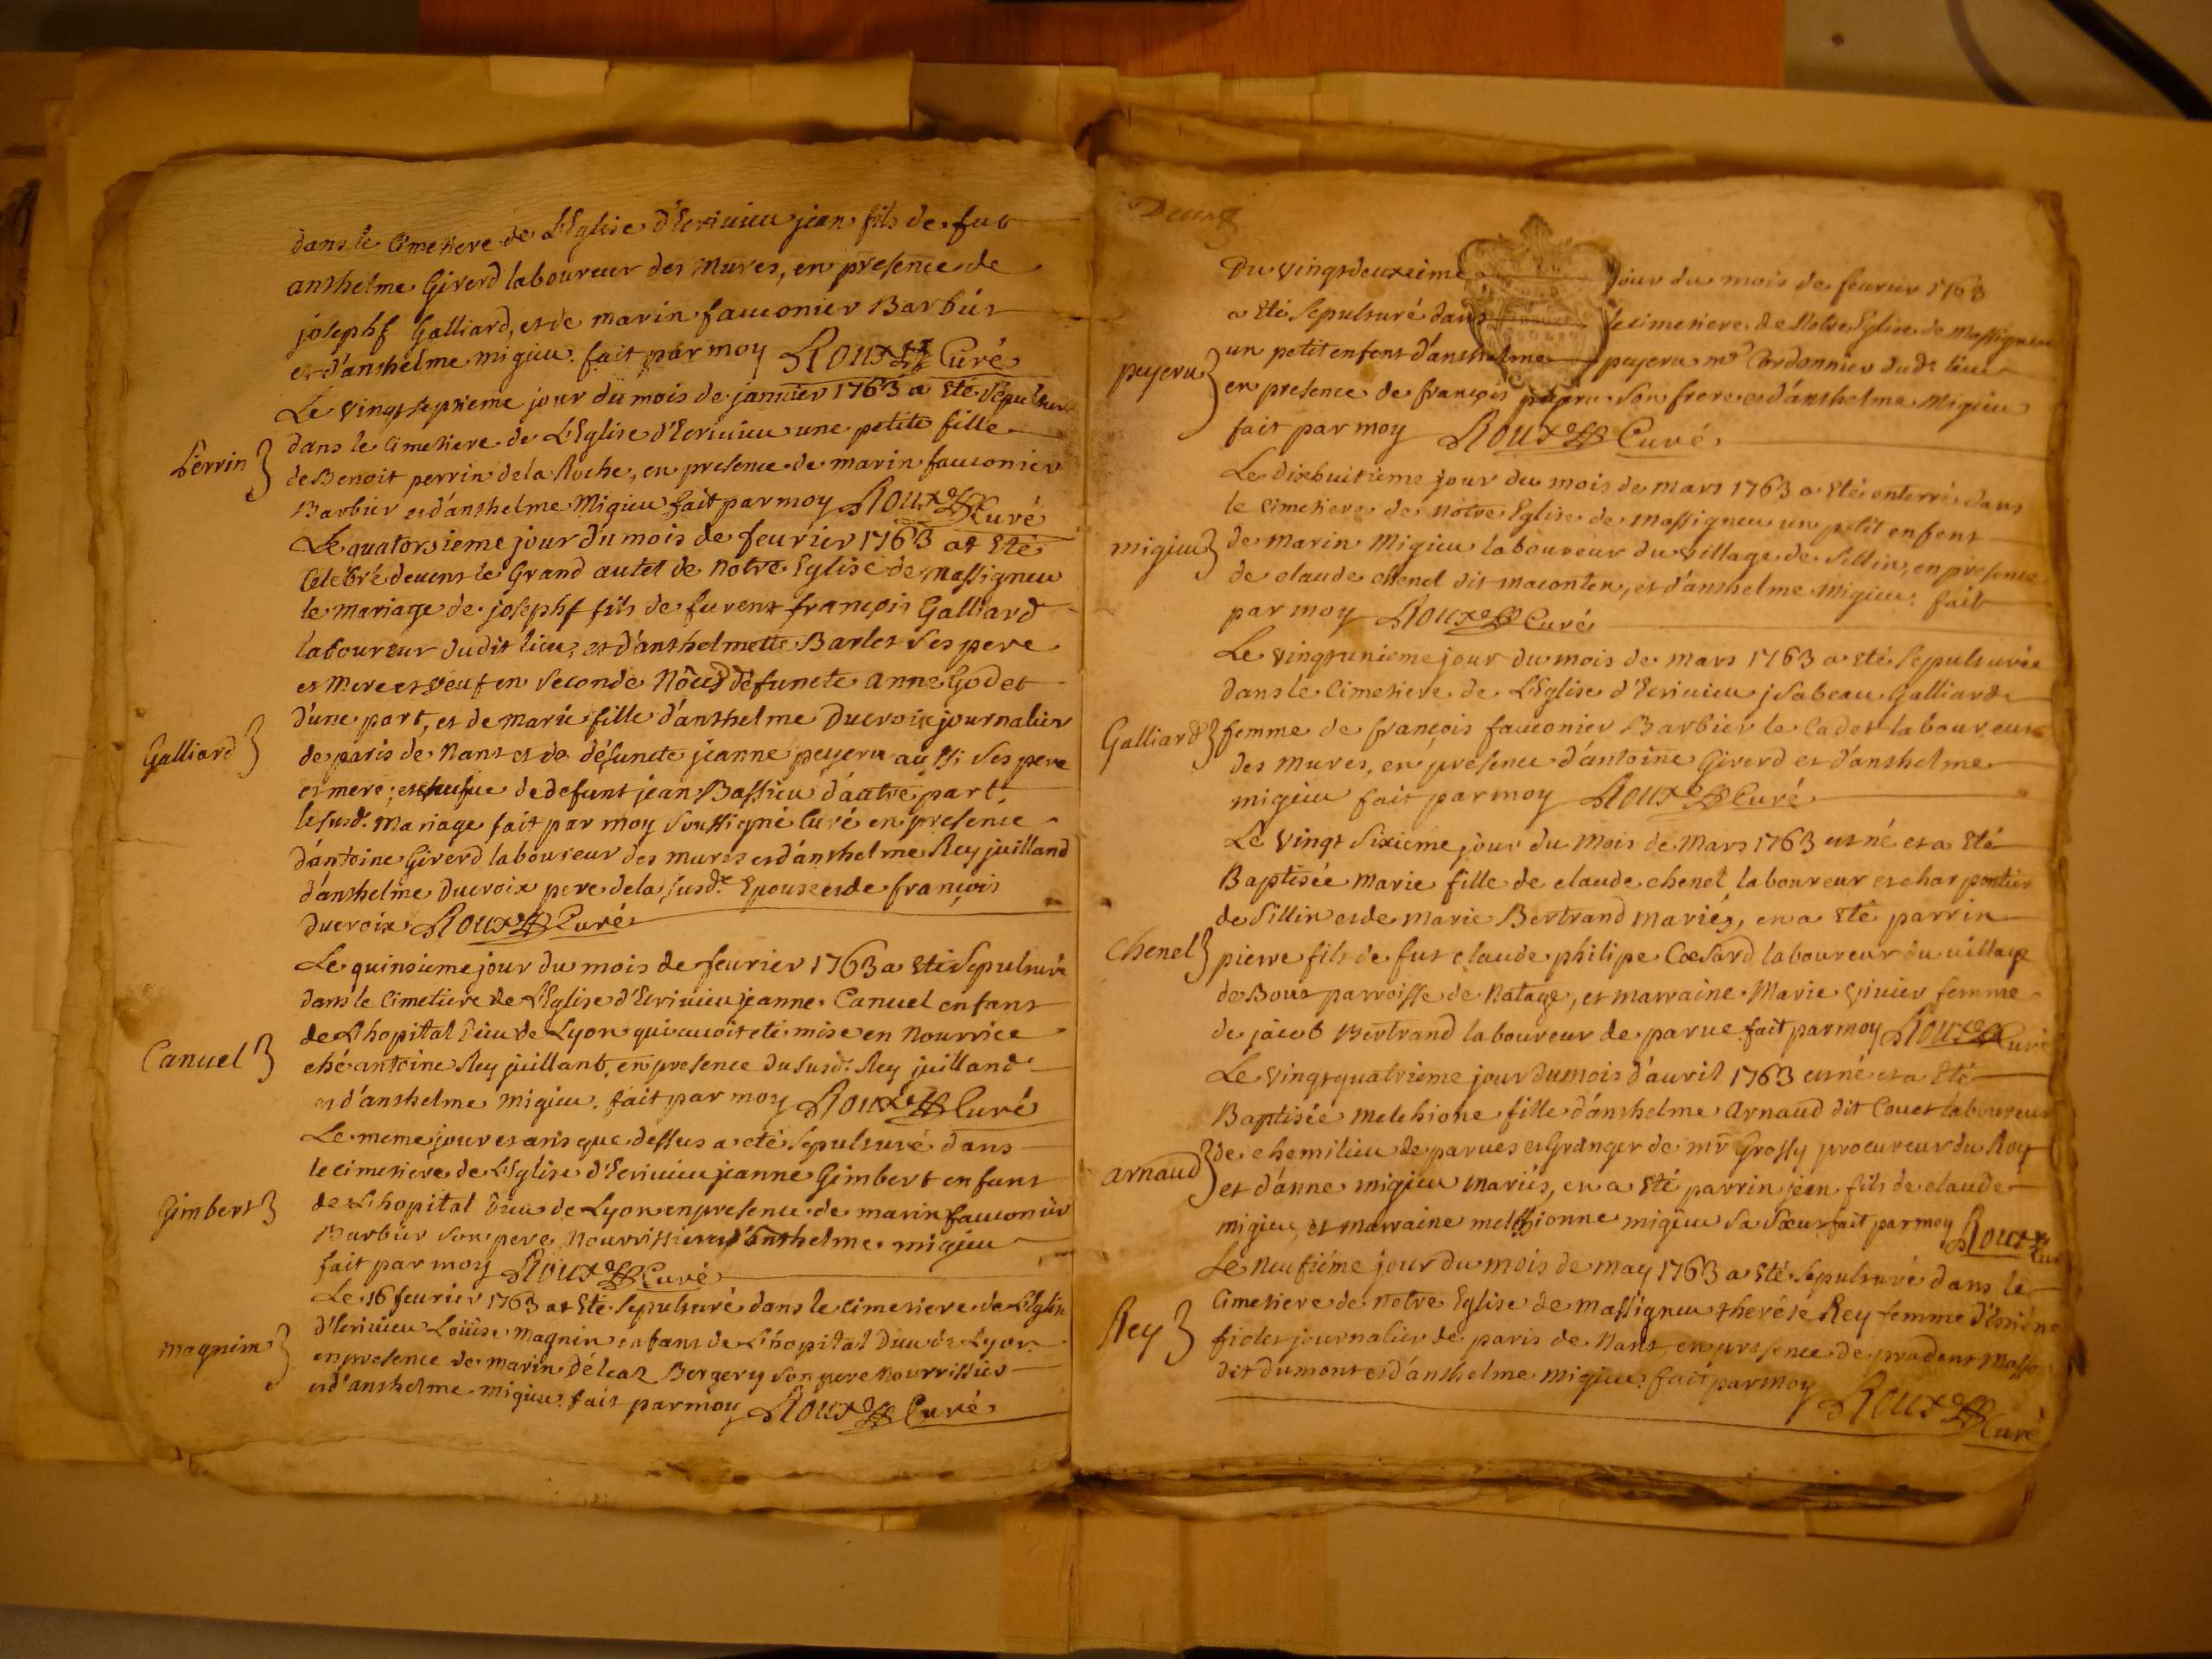 dans le Cimetiere de L'Eglise d'Ecrivieu jean fils de fut
anthelme Giverd laboureur des Mures, en presence de
josephf Galliard, et de marin fauconier Barbier
et d'anthelme migieu. fait par moy Roux Curé
Le vingt septieme jour du mois de janvier 1763 a Eté sepulturé
dans le Cimetiere de L'Eglise d'Ecrivieu une petite fille
Perrin
de Benoit perrin de la Roche, en presence de marin fauconier
Barbier et d'anthelme Migieu fait par moy Roux Curé
Le quatorsieme jour du mois de feurier 1763 at Eté
Celebré devent le Grand autel de Notre Eglise de massigneu
le mariage de josephf fils de furent françois Galliard
laboureur dudit lieu, et d'anthelmette Barlet ses pere
et mere et veuf en seconde Nôces défuncte anne Godet
d'une part, et de marie fille d'anthelme Ducroix journalier
Galliard
de paris de Nant et de défuncte jeanne peyeru aussi ses pere
et mere; et de defunt jean Bassieu d'autre part.
le susd. Mariage fait par moy soussigné Curé en presence
d'antoine Giverd laboureur des mures et d'anthelme Rey juilland
d'anthelme Ducroix pere de la susde. Epouse et de françois
Ducroix Roux Curé
Le quinsieme jour du mois de feurier 1763 a Eté sepulturé
dans le Cimetiere de L'Eglise d'Ecrivieu jeanne Canuel enfant
de L'hopital Dieu de Lyon qui auoit eté mise en Nourrice
Canuel
ché antoine Rey juillant, en presence du susd. Rey juilland
et d'anthelme migieu. fait par moy Roux Curé
Le meme jour et an que dessus a eté sepulturé dans
le cimetiere de L'Eglise d'Ecrivieu jeanne Gimbert enfant
Gimbert
de L'hopital Dieu de Lyon en presence de marin fauconier
Barbier son pere Nourrissier et d'anthelme migieu
fait par moy Roux Curé
Le 16 feurier 1763 at Eté sepulturé dans le cimetiere de L'Eglise
d'Ecrivieu Loüise Magnin enfant de L'hopital Dieu de Lyon
magnin
en presence de marin Déleaz Bergery son pere nourrissier
et d'anthelme migieu. fait par moy Roux Curé
Du vingtdeuxieme jour du mois de feurier 1763
a Eté sepulturé dans le cimetiere de Notre Eglise de Massigneu
peyeru
un petit enfent d'anthelme peyeru mre Cordonnier dudt lieu
en presence de françois peyeru son frere et d'anthelme Migieu
fait par moy Roux Curé
Le dixhuitieme jour du mois de mars 1763 a Eté enterré dans
le cimetiere de notre Eglise de massigneu un petit enfent
migieu
de marin Migieu laboureur du village de Sillin, en presence
de claude chenel dit maconten, et d'anthelme Migieu. fait
par moy Roux Curé
Le vingtunieme jour du mois de mars 1763 a eté sepulturée
dans le Cimetiere de L'Eglise d'Ecrivieu jsabeau Galliard
Galliard
femme de françois fauconier Barbier le Cadet laboureur
des mures, en presence d'antoine Giverd et d'anthelme
migieu fait par moy Roux Curé
Le vingt sixieme jour du mois de Mars 1763 est né et a Eté
Baptisée marie fille de claude chenel laboureur et charpentier
de Sillin et de marie Bertrand mariés, en a Eté parrin
chenel
pierre fils de fut claude philipe Cœsard laboureur du village
de Bout parroisse de Natage, et marraine Marie vivier femme
de jacob Bertrand laboureur de parue fait par moy Roux Curé
Le vingtquatrieme jour du mois d'auril 1763 est né et a Eté
Baptisée melchione fille d'anthelme Arnaud dit Couet laboureur
arnaud
de chemilieu de parues et Granger de mr Grossy procureur du Roy
et d'anne migieu mariés, en a eté parrin jean fils de claude
migieu, et marraine melchionne migieu sa sœur fait par moy Roux Curé
Le neufiéme jour du mois de may 1763 a Eté sepulturé dans le
Cimetiere de notre Eglise de massigneu therése Rey femme d'étiéne
Rey
fiolet journalier de paris de Nant, en presence de prudent Masso
dit dumont et d'anthelme migieu fait par moy
Roux Curé